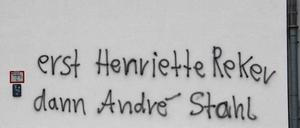 erst Henriette Reker
dann André Stahl